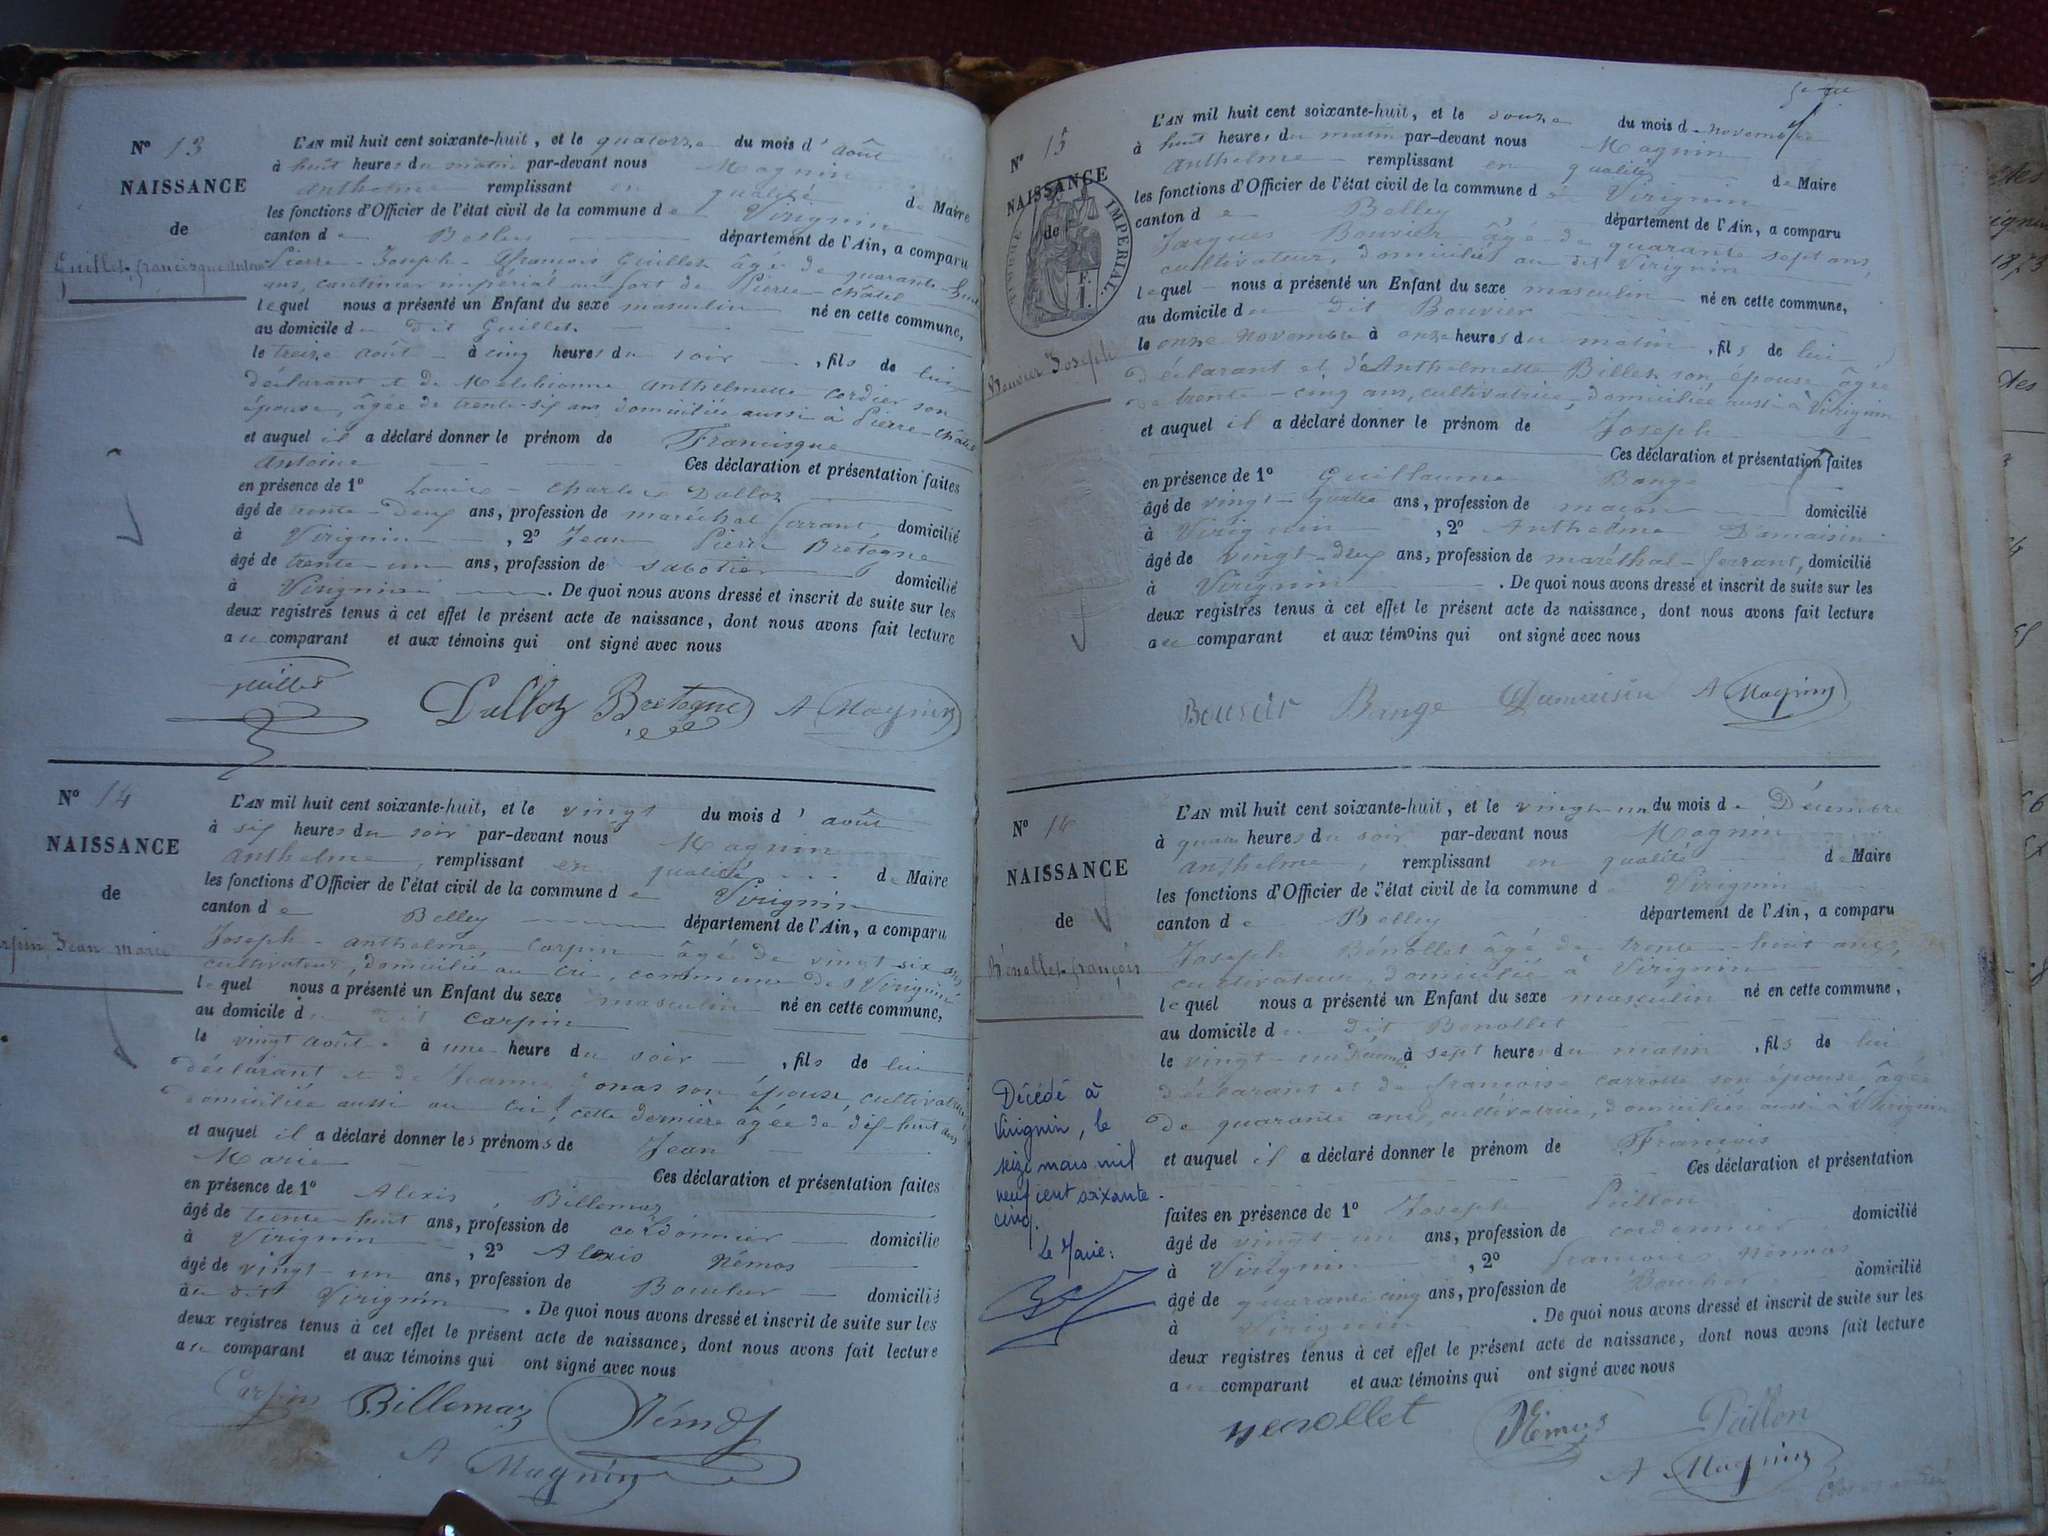 N° 13
NAISSANCE
de
Guillet, francisque antoine
L'AN mil huit cent soixante-huit, et le quatorze du mois d'août
à huit heures du matin par-devant nous Magnin
Anthelme remplissant en qualité de Maire
les fonctions d'Officier de l'état civil de la commune de Virignin
canton de Belley département de l'Ain, a comparu
Pierre-Joseph-François Guillet âgé de quarante-huit
ans, cantinier impérial au fort de Pierre-Châtel
lequel nous a présenté un Enfant du sexe masculin né en cette commune,
au domicile du dit Guillet
le treize août à cinq heures du soir, fils de lui
déclarant et de Anthelmette Cordier son
épouse, âgée de trente-six ans domiciliée aussi à Pierre-Châtel
et auquel il a déclaré donner le prénom de Francisque
Antoine Ces déclaration et présentation faites
en présence de 1° Louis-Charles Dalloz
âgé de trente-deux ans, profession de maréchal ferrant domicilié
à Virignin, 2° Jean Pierre Bretogne
âgé de trente-un ans, profession de sabotier domicilié
à Virignin. De quoi nous avons dressé et inscrit de suite sur les
deux registres tenus à cet effet le présent acte de naissance, dont nous avons fait lecture
au comparant et aux témoins qui ont signé avec nous
guillet Dalloz Bretogne A Magnin
N° 14
NAISSANCE
de
Carpin, Jean marie
L'AN mil huit cent soixante-huit, et le vingt du mois d'août
à six heures du soir par-devant nous Magnin
Anthelme, remplissant en qualité de Maire
les fonctions d'Officier de l'état civil de la commune de Virignin
canton de Belley département de l'Ain, a comparu
Joseph-anthelme Carpin âgé de vingt six ans
cultivateur, domicilié au cri, commune de Virignin
lequel nous a présenté un Enfant du sexe masculin né en cette commune,
au domicile du dit Carpin
le vingt août à une heure du soir, fils de lui
déclarant et de Jeanne son épouse, cultivatrice
domiciliée aussi au cri, cette dernière âgée de dix-huit ans
et auquel il a déclaré donner les prénoms de Jean
Marie Ces déclaration et présentation faites
en présence de 1° Alexis, Billemaz
âgé de trente-huit ans, profession de cordonnier domicilié
à Virignin, 2° Alexis Némos
âgé de vingt-un ans, profession de Boucher domicilié
au dit Virignin. De quoi nous avons dressé et inscrit de suite sur les
deux registres tenus à cet effet le présent acte de naissance, dont nous avons fait lecture
au comparant et aux témoins qui ont signé avec nous
Carpin Billemaz Némos
A Magnin
N° 15
NAISSANCE
de
TIMBRE IMPERIAL
Bouvier Joseph
L'AN mil huit cent soixante-huit, et le douze du mois de novembre
à huit heures du matin par-devant nous Magnin
Anthelme remplissant en qualité de Maire
les fonctions d'Officier de l'état civil de la commune de Virignin
canton de Belley département de l'Ain, a comparu
Jacques Bouvier âgé de quarante sept ans,
cultivateur, domicilié au dit Virignin
lequel nous a présenté un Enfant du sexe masculin né en cette commune,
au domicile du dit Bouvier
le onze novembre à onze heures du matin, fils de lui
déclarant et d'Anthelmette Billet son épouse âgée
de trente-cinq ans, cultivatrice, domiciliée aussi à Virignin
et auquel il a déclaré donner le prénom de Joseph
Ces déclaration et présentation faites
en présence de 1° Guillaume Bange
âgé de vingt-quatre ans, profession de maçon domicilié
à Virignin, 2° Anthelme Dumaisin
âgé de vingt-deux ans, profession de maréchal-ferrant, domicilié
à Virignin. De quoi nous avons dressé et inscrit de suite sur les
deux registres tenus à cet effet le présent acte de naissance, dont nous avons fait lecture
au comparant et aux témoins qui ont signé avec nous
Bouvier Bange Dumaisin A Magnin
N° 16
NAISSANCE
de
Bénollet françois
Décédé à
Virignin, le
seize mars mil
neuf cent soixante
cinq.
Le Maire:
L'AN mil huit cent soixante-huit, et le vingt-un du mois de Décembre
à quatre heures du soir par-devant nous Magnin
Anthelme, remplissant en qualité de Maire
les fonctions d'Officier de l'état civil de la commune de Virignin
canton de Belley département de l'Ain, a comparu
Joseph Bénollet âgé de trente-huit ans,
cultivateur, domicilié à Virignin
lequel nous a présenté un Enfant du sexe masculin né en cette commune,
au domicile du dit Benollet
le vingt-un Décembre à sept heures du matin, fils de lui
déclarant et de françoise Carrotte son épouse âgée
de quarante ans, cultivatrice, domiciliée aussi à Virignin
et auquel il a déclaré donner le prénom de François
Ces déclaration et présentation
faites en présence de 1° Joseph Paillon
âgé de vingt un ans, profession de cordonnier domicilié
à Virignin, 2° françois Némos
âgé de quarante cinq ans, profession de Boucher domicilié
à Virignin. De quoi nous avons dressé et inscrit de suite sur les
deux registres tenus à cet effet le présent acte de naissance, dont nous avons fait lecture
au comparant et aux témoins qui ont signé avec nous
Benollet Némos Paillon
A Magnin